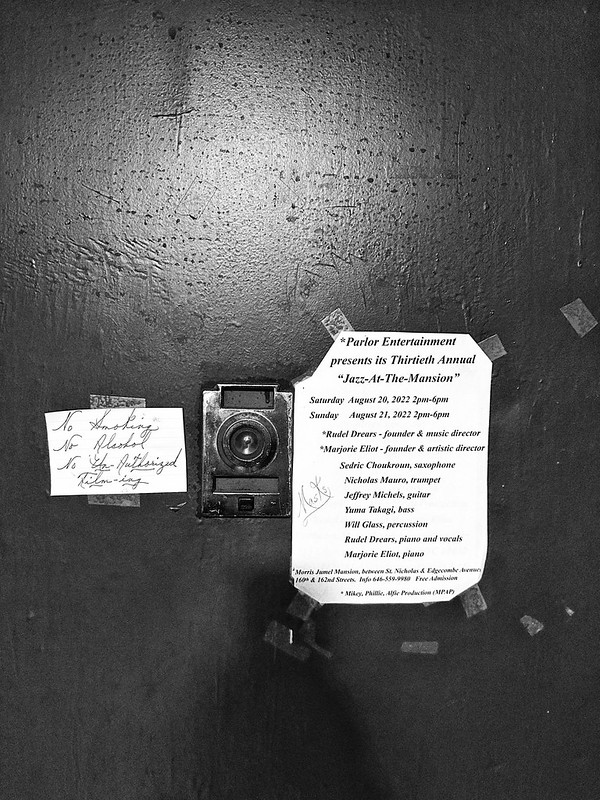 No Smoking
No Alcohol
No Un-Authorized
Film-ing
*Parlor Entertainment
presents its Thirtieth Annual
"Jazz-At-The-Mansion"
Saturday August 20, 2022 2pm-6pm
Sunday August 21, 2022 2pm-6pm
*Rudel Drears - founder & music director
*Marjorie Eliot - founder & artistic director
Sedric Choukroun, saxophone
Nicholas Mauro, trumpet
Jeffrey Michels, guitar
Yuma Takagi, bass
Will Glass, percussion
Rudel Drears, piano and vocals
Marjorie Eliot, piano
*Morris Jumel Mansion, between St. Nicholas & Edgecombe Avenues
160th & 162nd Streets. Info 646-559-9980 Free Admission
* Mikey, Phillie, Alfie Production (MPAP)